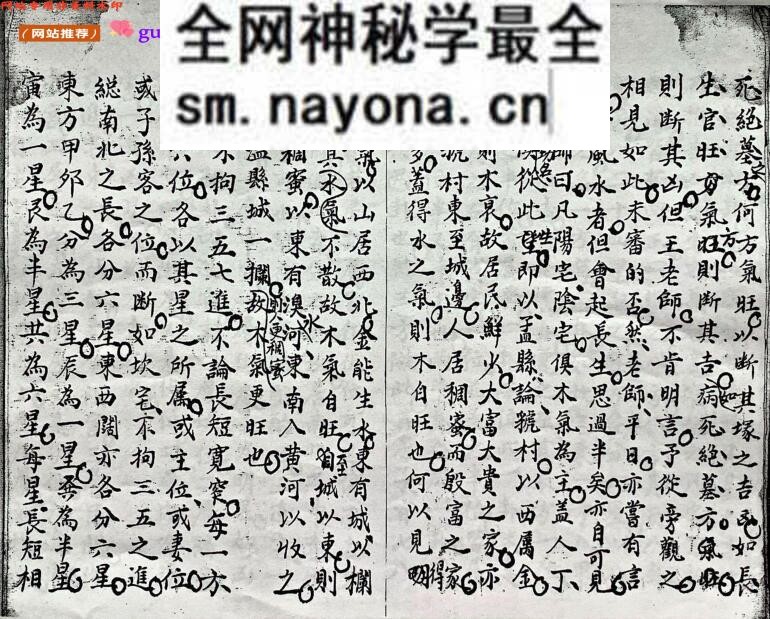 全网神秘学最全
sm.nayona.cn
(网站推荐)
gu
死絕墓方何方氣旺以斷其塚之吉凶如長
生官旺方氣旺則斷其吉病死絕墓方氣旺
則斷其凶但王老師不肯明言予從旁觀之
相見如此未審的否然老師平日亦嘗有言
風水者但會起長生思過半矣亦自可見
師曰凡陽宅陰宅俱木氣為主蓋人丁
從此望即以孟縣論號村以西屬金
則木衰故居民鮮少大富大貴之家亦
號村東至城邊人居稠密而殷富之家
多蓋得水之氣則木自旺也何以見得
氣以山居西北金能生水東有城以欄
其水氣不散故木氣自旺自城以東則
稠密以東有溴河東南入黃河以收之
孟縣城一攔故木氣更旺也
不拘三五七進不論長短寬窄每一方
六位各以其星之所屬或主位或妻位
或子孫客之位而斷如坎宅不拘三五之進
總南北之長各分六星東西闊亦各分六星
東方甲卯乙分為三星辰為一星巽為半星
寅為一星艮為半星共為六星每星長短相